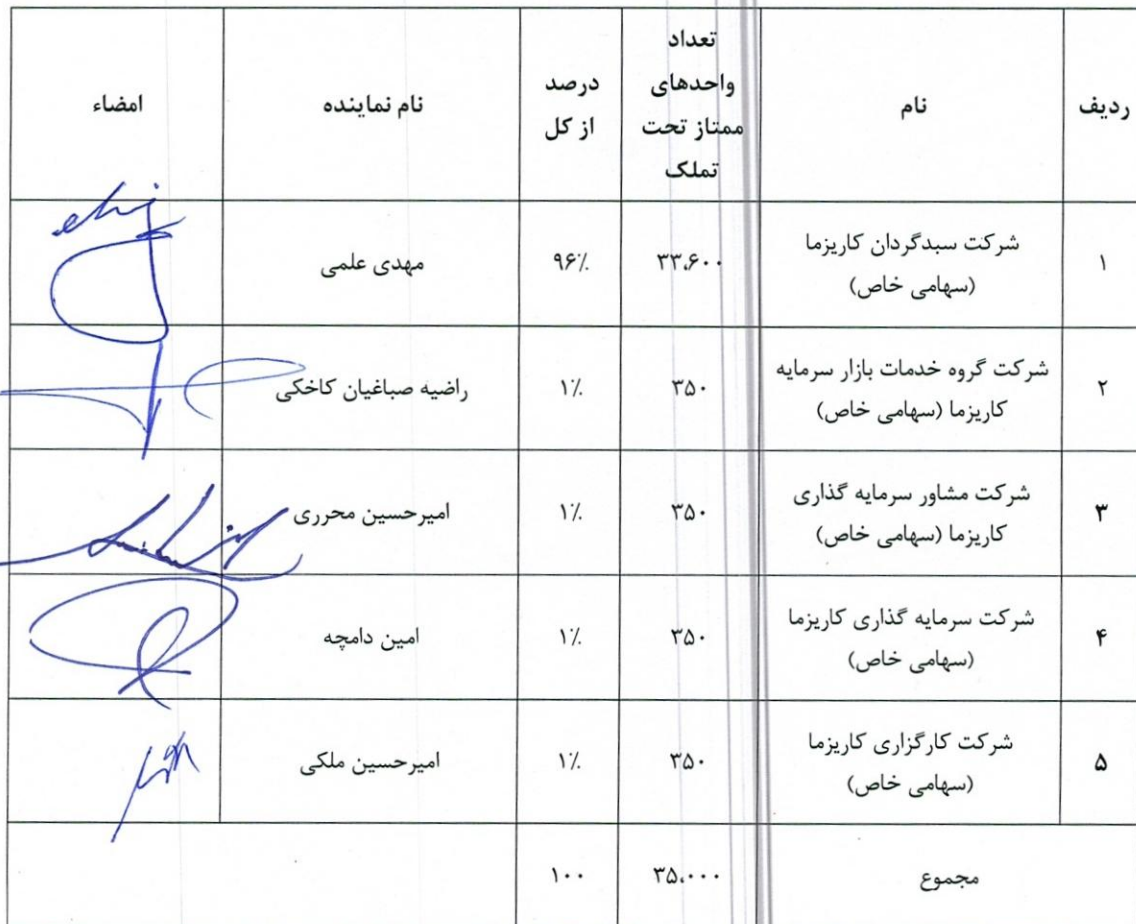 ردیف
نام
تعداد
واحدهای
ممتاز تحت
تملک
درصد
از کل
نام نماینده
امضاء
۱
شرکت سبدگردان کاریزما
(سهامی خاص)
۳۳،۶۰۰
۹۶٪
مهدی علمی
۲
شرکت گروه خدمات بازار سرمایه
کاریزما (سهامی خاص)
۳۵۰
۱٪
راضیه صباغیان کاخکی
۳
شرکت مشاور سرمایه گذاری
کاریزما (سهامی خاص)
۳۵۰
۱٪
امیرحسین محرری
۴
شرکت سرمایه گذاری کاریزما
(سهامی خاص)
۳۵۰
۱٪
امین دامچه
۵
شرکت کارگزاری کاریزما
(سهامی خاص)
۳۵۰
۱٪
امیرحسین ملکی
مجموع
۳۵،۰۰۰
۱۰۰